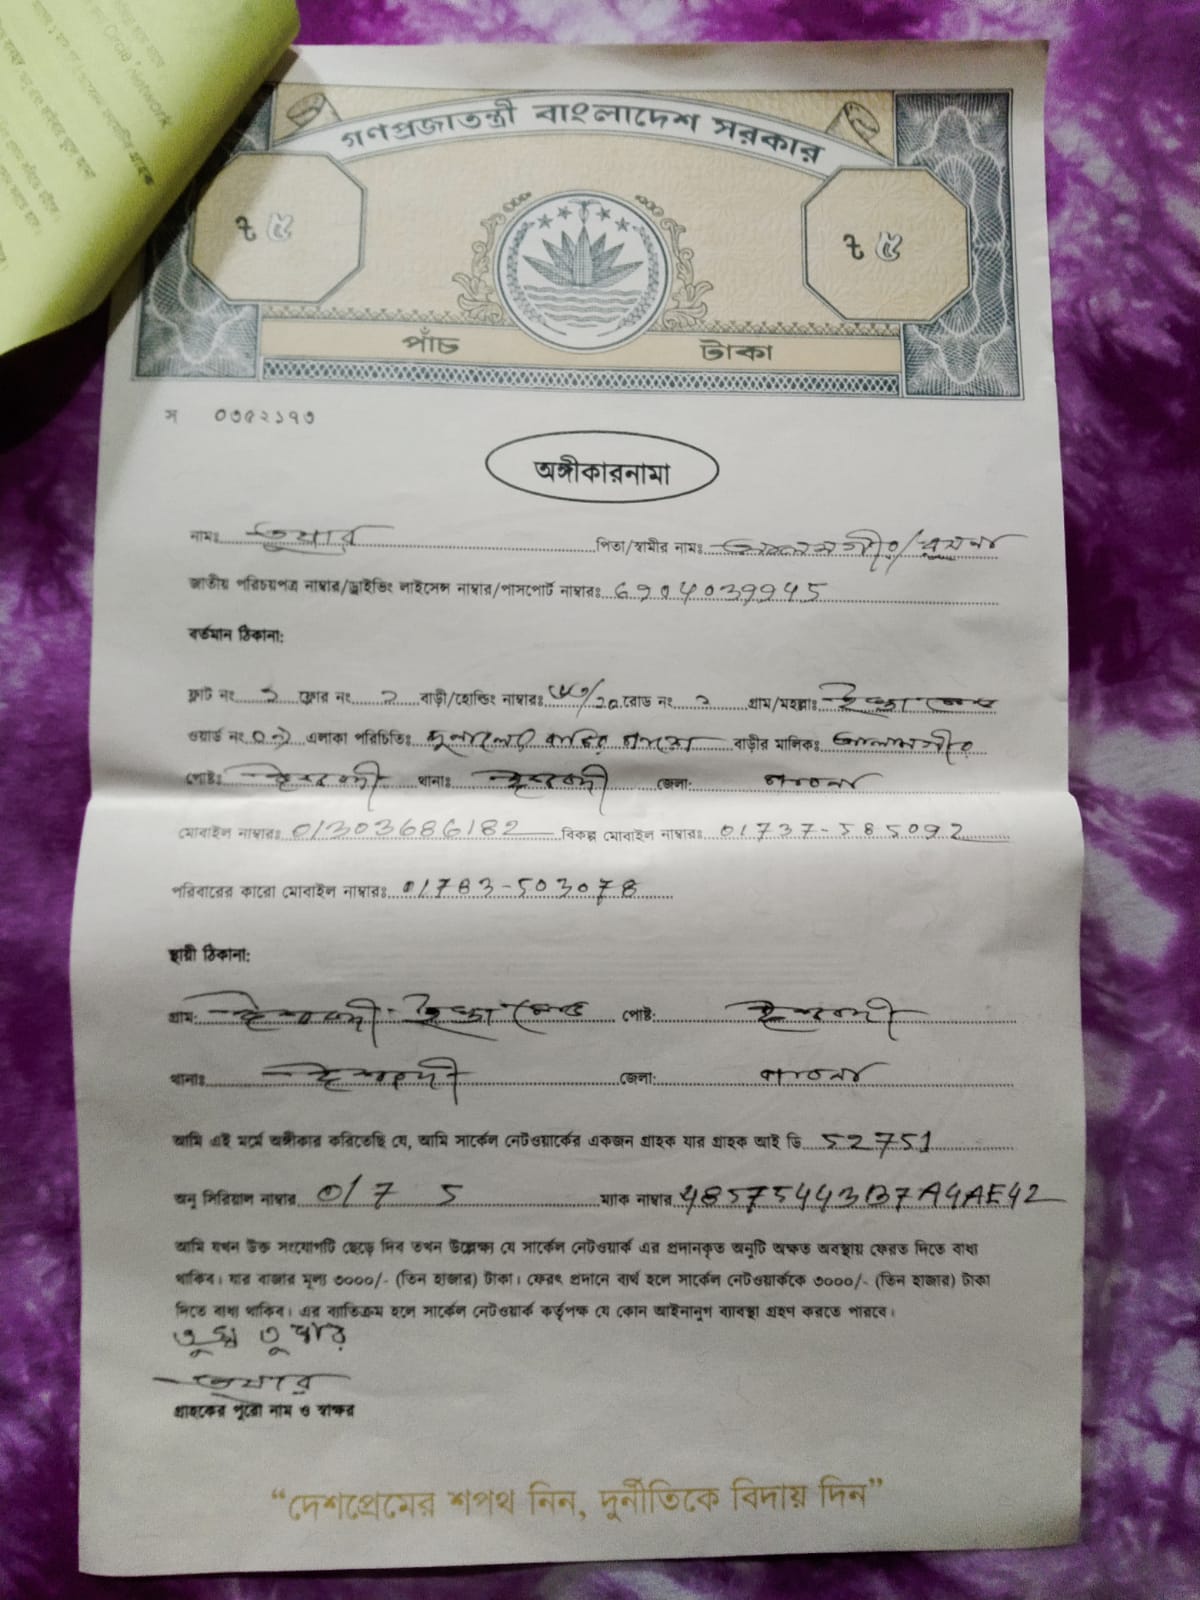 Circle Network
গণপ্রজাতন্ত্রী বাংলাদেশ সরকার
৳ ৫ ৳ ৫
পাঁচ টাকা
স ০৩৫২১৭৩
অঙ্গীকারনামা
নামঃ তুষার পিতা/স্বামীর নামঃ আলমগীর/
জাতীয় পরিচয়পত্র নাম্বার/ড্রাইভিং লাইসেন্স নাম্বার/পাসপোর্ট নাম্বারঃ 6904039945
বর্তমান ঠিকানা:
ফ্লাট নং ফ্লোর নং বাড়ী/হোল্ডিং নাম্বারঃ রোড নং গ্রাম/মহল্লাঃ
ওয়ার্ড নং এলাকা পরিচিতিঃ দুলালের বাড়ির পাশে বাড়ীর মালিকঃ আলমগীর
পোষ্টঃ ঈশ্বরদী থানাঃ ঈশ্বরদী জেলা: পাবনা
মোবাইল নাম্বারঃ 01303686182 বিকল্প মোবাইল নাম্বারঃ 01737-585092
পরিবারের কারো মোবাইল নাম্বারঃ 01783-503078
স্থায়ী ঠিকানা:
গ্রাম: ঈশ্বরদী পোষ্ট: ঈশ্বরদী
থানাঃ ঈশ্বরদী জেলা: পাবনা
আমি এই মর্মে অঙ্গীকার করিতেছি যে, আমি সার্কেল নেটওয়ার্কের একজন গ্রাহক যার গ্রাহক আই ডি 52751
অনু সিরিয়াল নাম্বার 0175 ম্যাক নাম্বার 48575443B7A4AE42
আমি যখন উক্ত সংযোগটি ছেড়ে দিব তখন উল্লেক্ষ্য যে সার্কেল নেটওয়ার্ক এর প্রদানকৃত অনুটি অক্ষত অবস্থায় ফেরত দিতে বাধ্য
থাকিব। যার বাজার মূল্য ৩০০০/- (তিন হাজার) টাকা। ফেরৎ প্রদানে ব্যর্থ হলে সার্কেল নেটওয়ার্ককে ৩০০০/- (তিন হাজার) টাকা
দিতে বাধ্য থাকিব। এর ব্যতিক্রম হলে সার্কেল নেটওয়ার্ক কর্তৃপক্ষ যে কোন আইনানুগ ব্যাবস্থা গ্রহণ করতে পারবে।
তুষার
তুষার
গ্রাহকের পুরো নাম ও স্বাক্ষর
“দেশপ্রেমের শপথ নিন, দুর্নীতিকে বিদায় দিন”